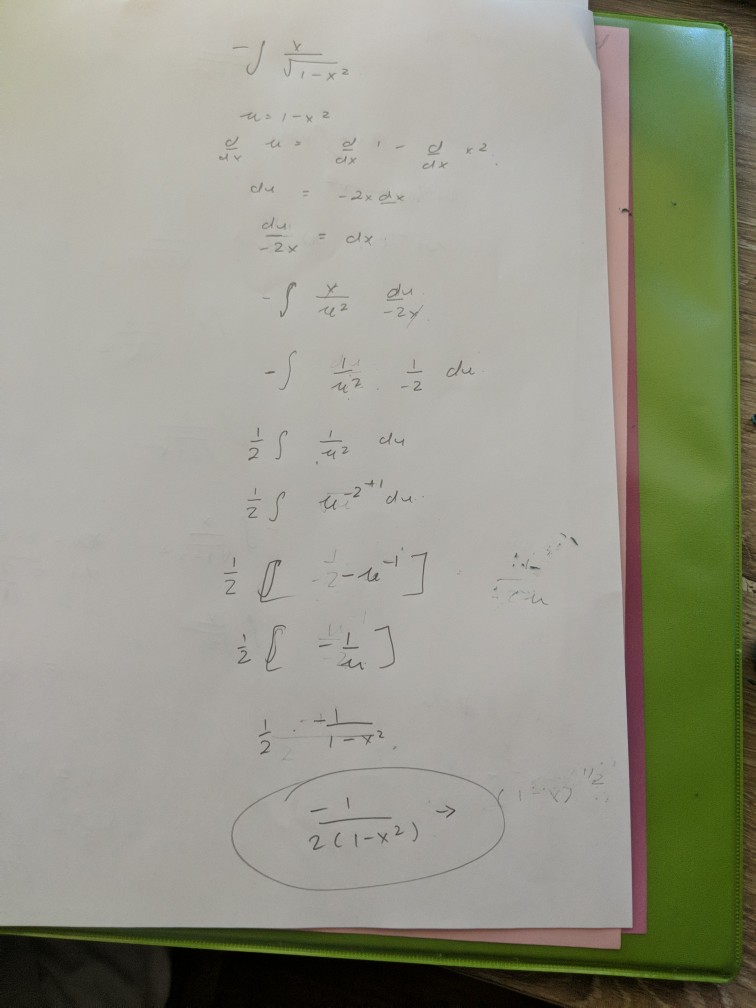 -∫ x/√(1-x²)
u = 1-x²
d/dx u = d/dx 1 - d/dx x²
du = -2x dx
du/-2x = dx
-∫ x/u² du/-2x
-∫ 1/u² 1/-2 du
1/2 ∫ 1/u² du
1/2 ∫ u⁻²⁺¹ du
1/2 [ -u⁻¹ ]
1/2 [ -1/u ]
1/2 · -1/(1-x²)
-1/(2(1-x²)) →